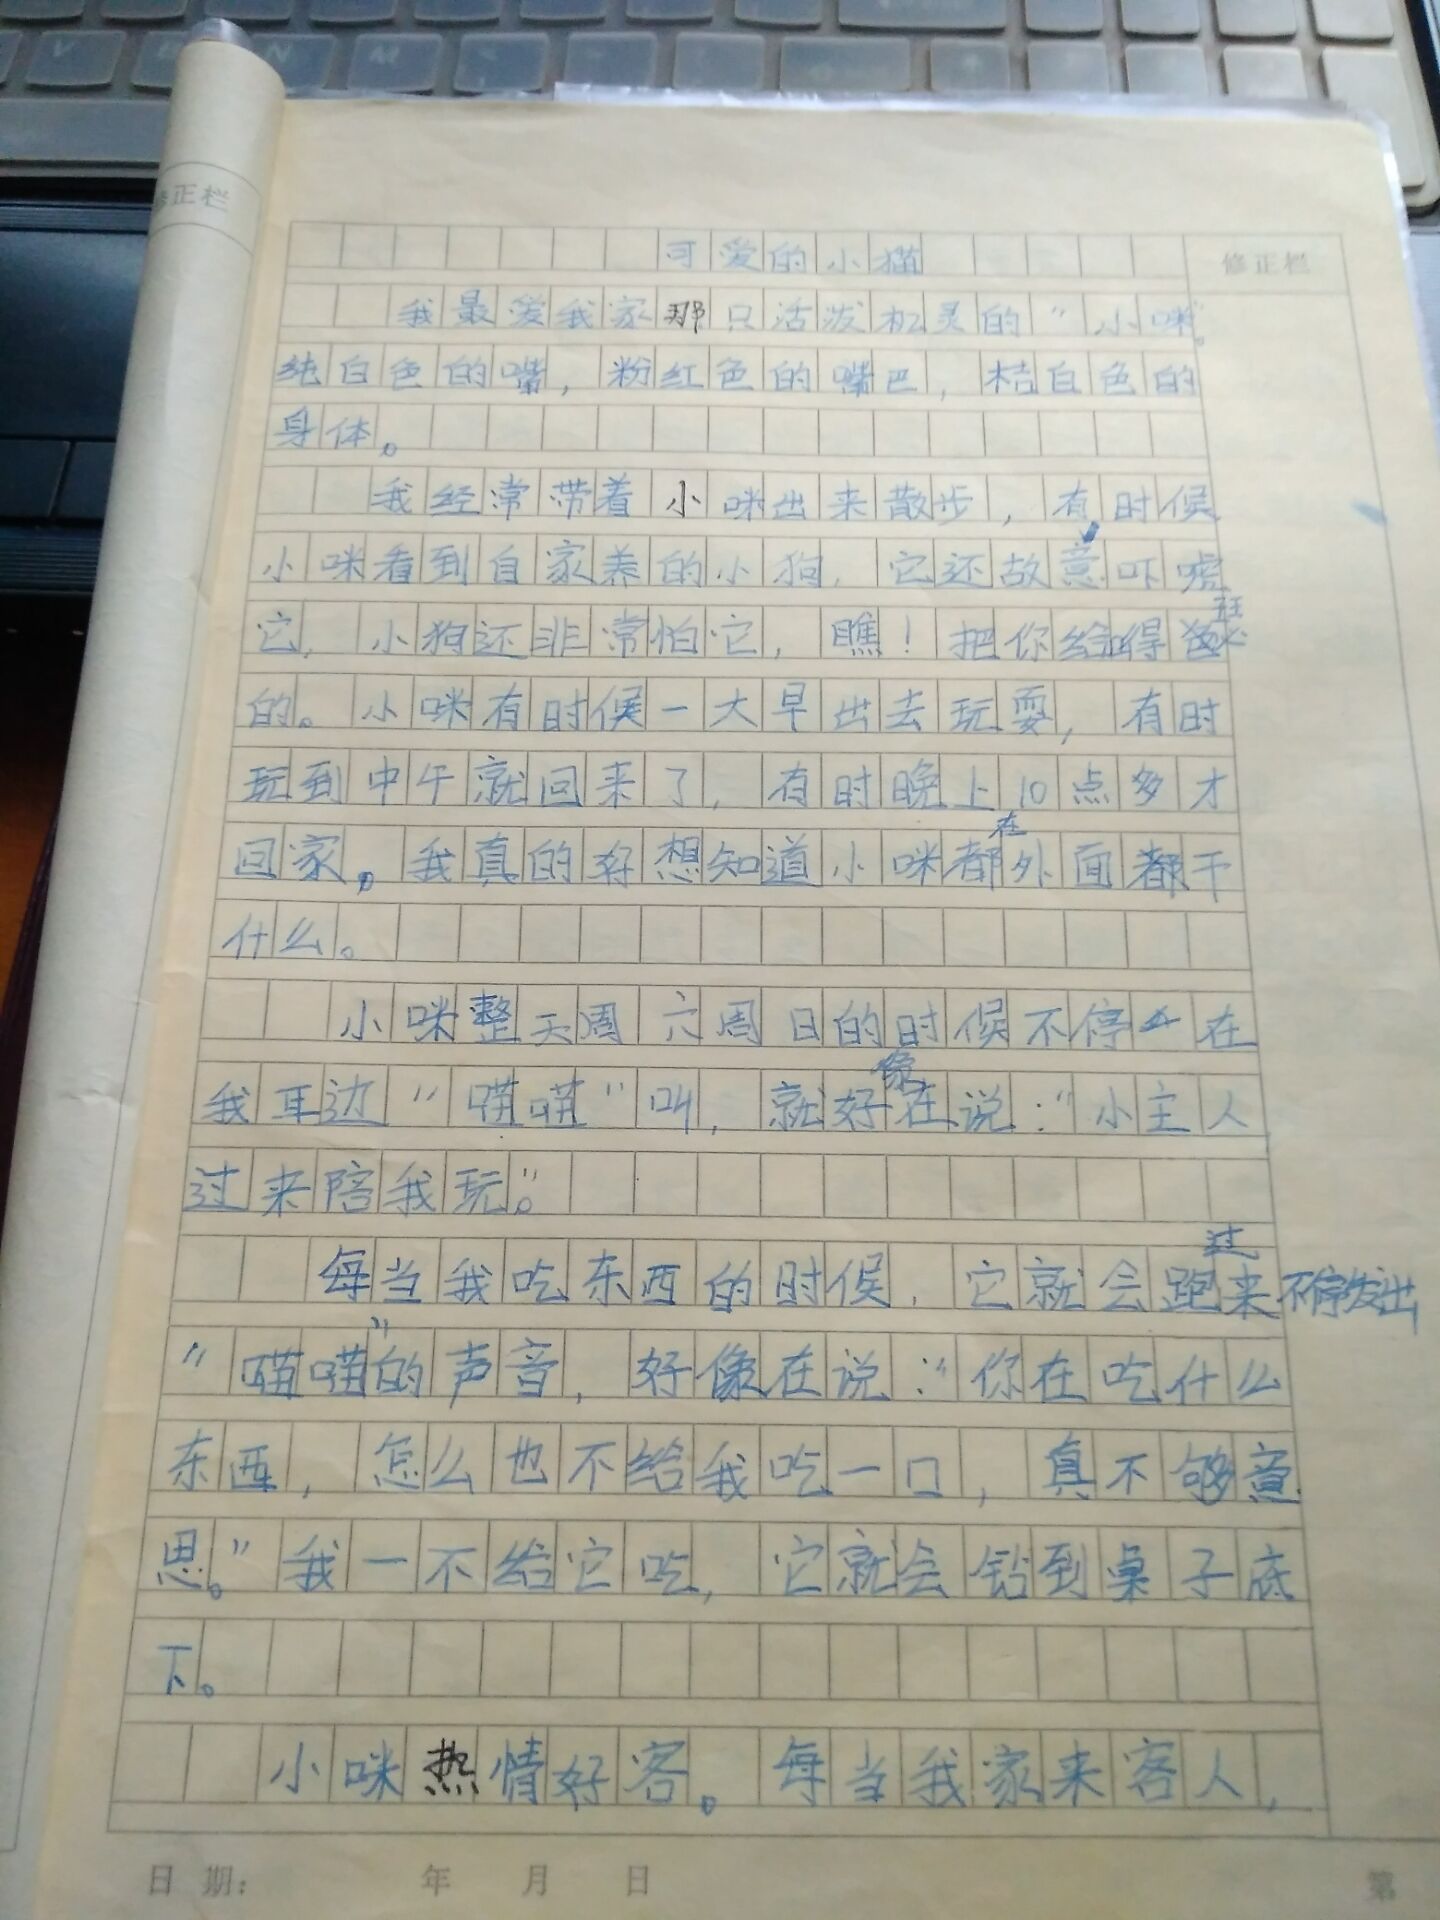 修正栏
可爱的小猫
修正栏
我最爱我家那只活泼机灵的"小咪"。
纯白色的嘴，粉红色的嘴巴，桔白色的
身体。
我经常带着小咪出来散步，有时候
小咪看到自家养的小狗，它还故意吓唬
它，小狗还非常怕它，瞧！把你给得
的。小咪有时候一大早出去玩耍，有时
玩到中午就回来了，有时晚上10点多才
回家。我真的好想知道小咪都在外面都干
什么。
小咪整天周六周日的时候不停在
我耳边"喵喵"叫，就好像在说："小主人
过来陪我玩。"
每当我吃东西的时候，它就会跑过来不停发出
"喵喵"的声音，好像在说："你在吃什么
东西，怎么也不给我吃一口，真不够意
思。"我一不给它吃，它就会钻到桌子底
下。
小咪热情好客。每当我家来客人，
日期： 年 月 日
第